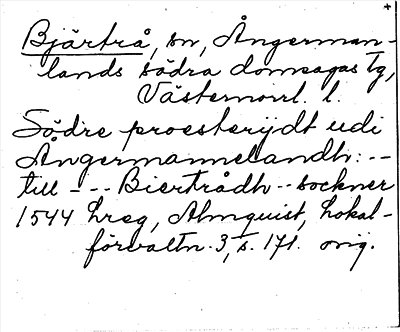 Bjärtrå, sn, Ångerman-
lands södra domsagas tg,
Västernorrl. l.
Södre proesterijdt udi
Ångermannelandh: --
till --- Biertrådh -- sockner
1544 hreg, Almquist, Lokal-
förvaltn. 3, s. 171. orig.